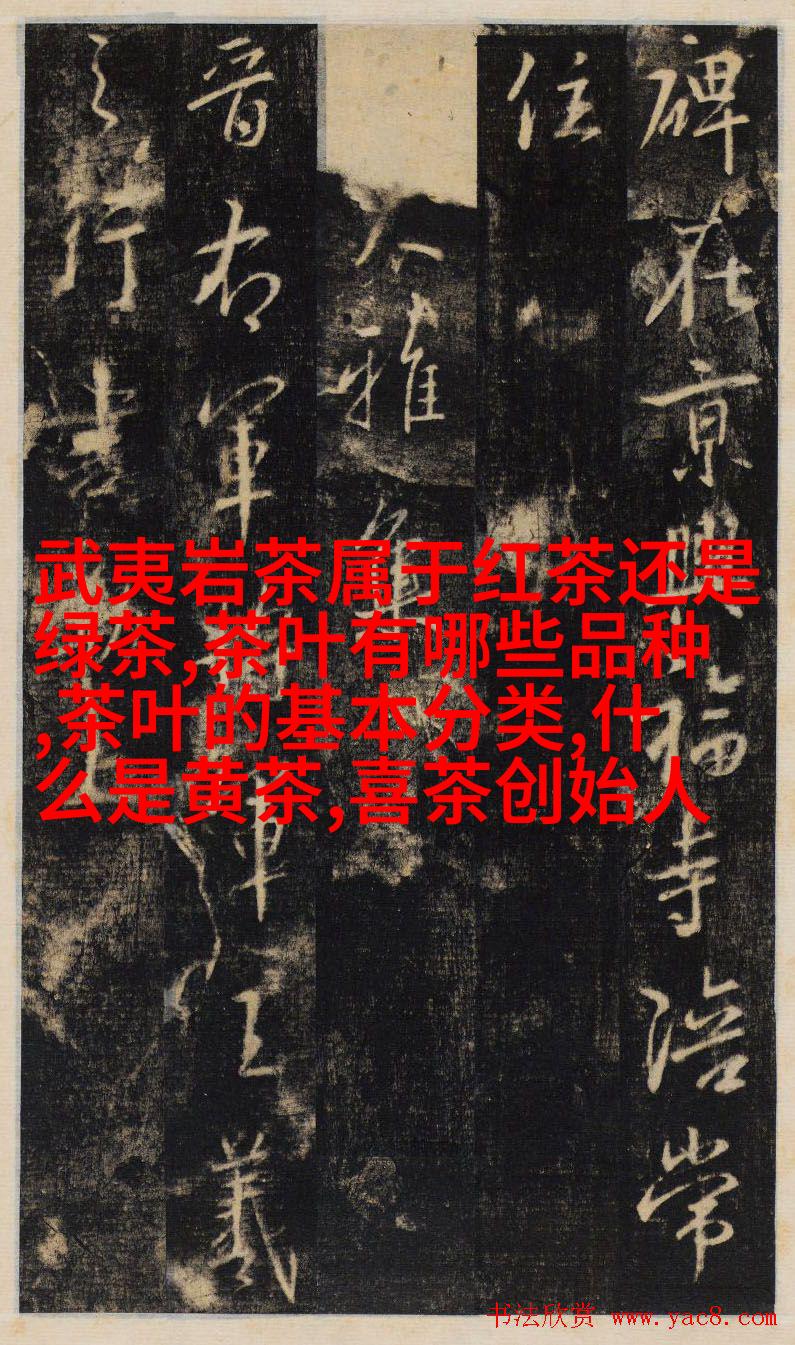 碑在京興福寺陪常
住
大雅集
晋右軍軍王羲
之行書
武夷岩茶属于红茶还是
绿茶,茶叶有哪些品种
,茶叶的基本分类,什
么是黄茶,喜茶创始人
书法欣赏 www.yac8.com